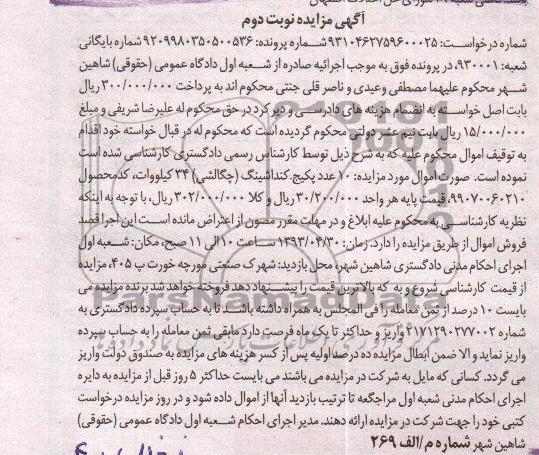 آگهی مزایده نوبت دوم
شماره درخواست: ۹۳۱۰۴۶۲۷۵۹۶۰۰۰۲۵ شماره پرونده: ۹۲۰۹۹۸۰۳۵۰۵۰۰۵۳۶ شماره بایگانی
شعبه: ۹۳۰۰۰۱، در پرونده فوق به موجب اجرائیه صادره از شعبه اول دادگاه عمومی (حقوقی) شاهین
شهر محکوم علیهما مصطفی وعیدی و ناصر قلی جنتی محکوم اند به پرداخت ۳۰۰/۰۰۰/۰۰۰ ریال
بابت اصل خواسته به انضمام هزینه های دادرسی و دیرکرد در حق محکوم له علیرضا شریفی و مبلغ
۱۵/۰۰۰/۰۰۰ ریال بابت نیم عشر دولتی محکوم گردیده است که محکوم له در قبال خواسته خود اقدام
به توقیف اموال محکوم علیه که به شرح ذیل توسط کارشناس رسمی دادگستری کارشناسی شده است
نموده است. صورت اموال مورد مزایده: ۱۰ عدد پکیج کندانسینگ (چگالشی) ۳۴ کیلووات، کدمحصول
۹۹۰۷۰۰۶۰۲۱۰، قیمت پایه هر واحد ۳۰/۲۰۰/۰۰۰ ریال و کلا ۳۰۲/۰۰۰/۰۰۰ ریال، با توجه به اینکه
نظریه کارشناسی به محکوم علیه ابلاغ و در مهلت مقرر مصون از اعتراض مانده است این اجرا قصد
فروش اموال از طریق مزایده را دارد. زمان: ۱۳۹۳/۰۴/۳۰ ساعت ۱۰ الی ۱۱ صبح، مکان: شعبه اول
اجرای احکام مدنی دادگستری شاهین شهر، محل بازدید: شهرک صنعتی مورچه خورت پ ۴۰۵، مزایده
از قیمت کارشناسی شروع و به که بالاترین قیمت را پیشنهاد دهد فروخته خواهد شد برنده مزایده می
بایست ۱۰ درصد از ثمن معامله را فی المجلس به همراه داشته باشد تا به حساب سپرده دادگستری به
شماره ۲۱۷۱۲۹۰۲۷۷۰۰۲ واریز و حداکثر تا یک ماه فرصت دارد مابقی ثمن معامله را به حساب سپرده
واریز نماید و الا ضمن ابطال مزایده ده درصد اولیه پس از کسر هزینه های مزایده به صندوق دولت واریز
می گردد. کسانی که مایل به شرکت در مزایده می باشند می بایست حداکثر ۵ روز قبل از مزایده به دایره
اجرای احکام مدنی شعبه اول مراجعه تا ترتیب بازدید آنها از اموال داده شود و در روز مزایده درخواست
کتبی خود را جهت شرکت در مزایده ارائه دهند. مدیر اجرای احکام شعبه اول دادگاه عمومی (حقوقی)
شاهین شهر شماره م/الف ۲۶۹
ParsNamadData